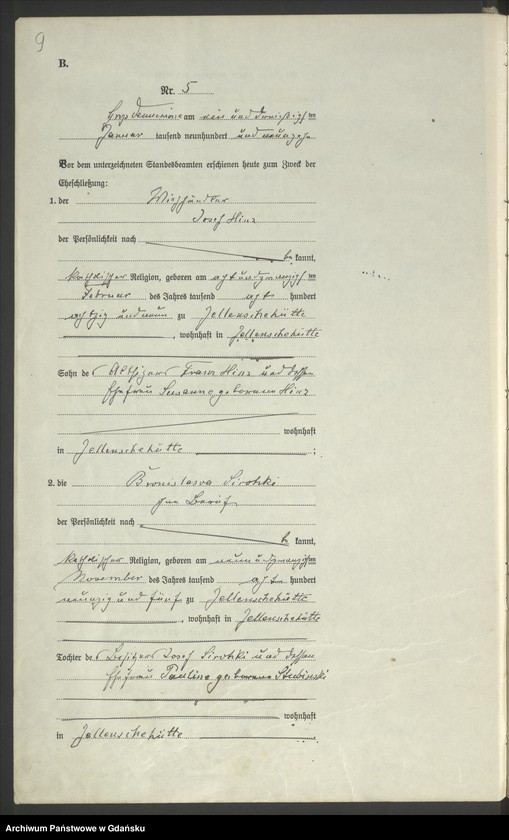 9
B.
Nr. 5
am ein und dreißigsten
Januar tausend neunhundert und neunzehn
Vor dem unterzeichneten Standesbeamten erschienen heute zum Zweck der
Eheschließung:
1. der Viehhändler
Josef Hinz
der Persönlichkeit nach
be kannt,
katholischer Religion, geboren am acht und zwanzigsten
Februar des Jahres tausend acht hundert
achtzig und neun zu Jellenschehütte
, wohnhaft in Jellenschehütte
Sohn des Altsitzers Franz Hinz und dessen
Ehefrau Susanna geborenen Hinz
wohnhaft
in Jellenschehütte ;
2. die Bronislawa Sirotzki
Beruf
der Persönlichkeit nach
be kannt,
katholischer Religion, geboren am neun und zwanzigsten
November des Jahres tausend acht hundert
neunzig und fünf zu Jellenschehütte
, wohnhaft in Jellenschehütte
Tochter des Besitzers Josef Sirotzki und dessen
Ehefrau Pauline geborenen
wohnhaft
in Jellenschehütte .
Archiwum Państwowe w Gdańsku